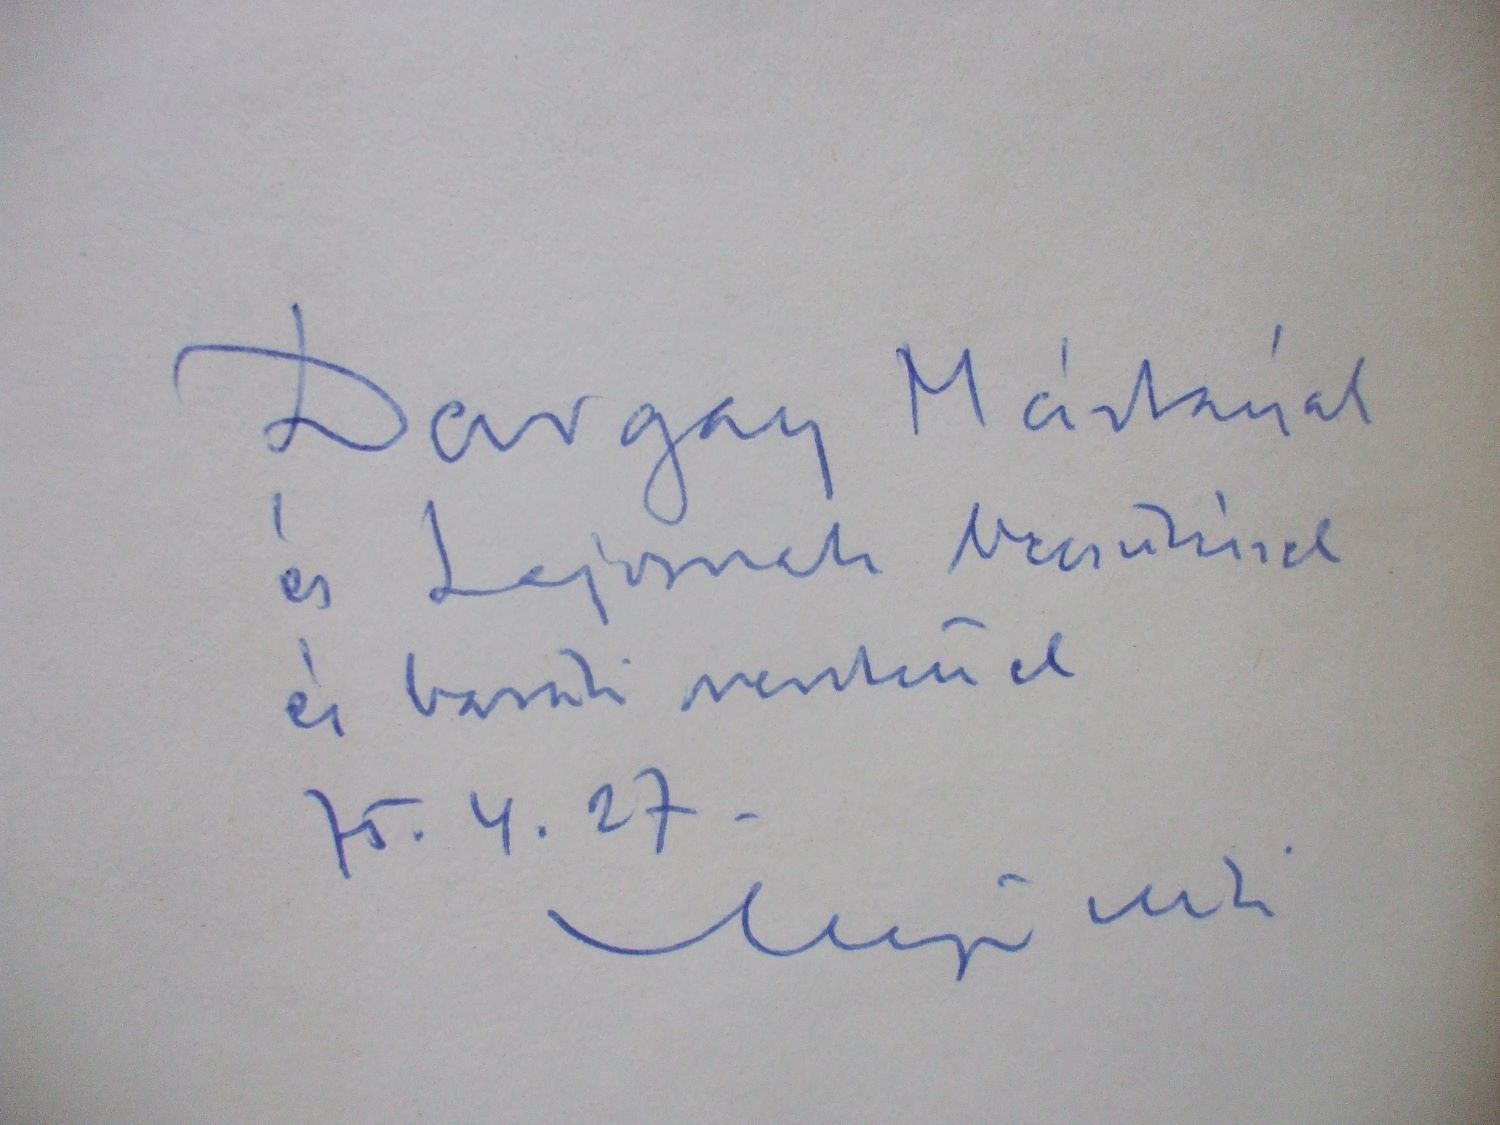 Dargay Mártának
és Lajosnak becsüléssel
és baráti szeretettel
75. 4. 27.